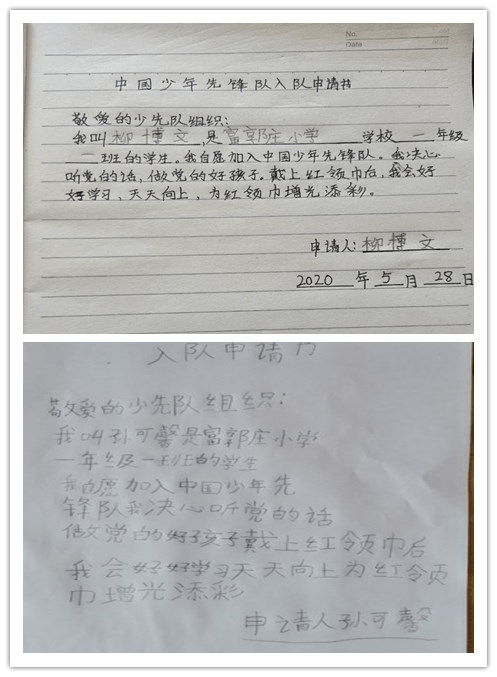 No.
Date
中国少年先锋队入队申请书
敬爱的少先队组织：
我叫柳博文，是富郭庄小学 学校 一 年级
二 班的学生。我自愿加入中国少年先锋队。我决心
听党的话，做党的好孩子。戴上红领巾后，我会好
好学习，天天向上，为红领巾增光添彩。
申请人：柳博文
2020 年 5 月 28 日
入队申请书
敬爱的少先队组织：
我叫孙可馨是富郭庄小学
一年级一班的学生
我自愿加入中国少年先
锋队我决心听党的话
做党的好孩子戴上红领巾后
我会好好学习天天向上为红领
巾增光添彩
申请人孙可馨